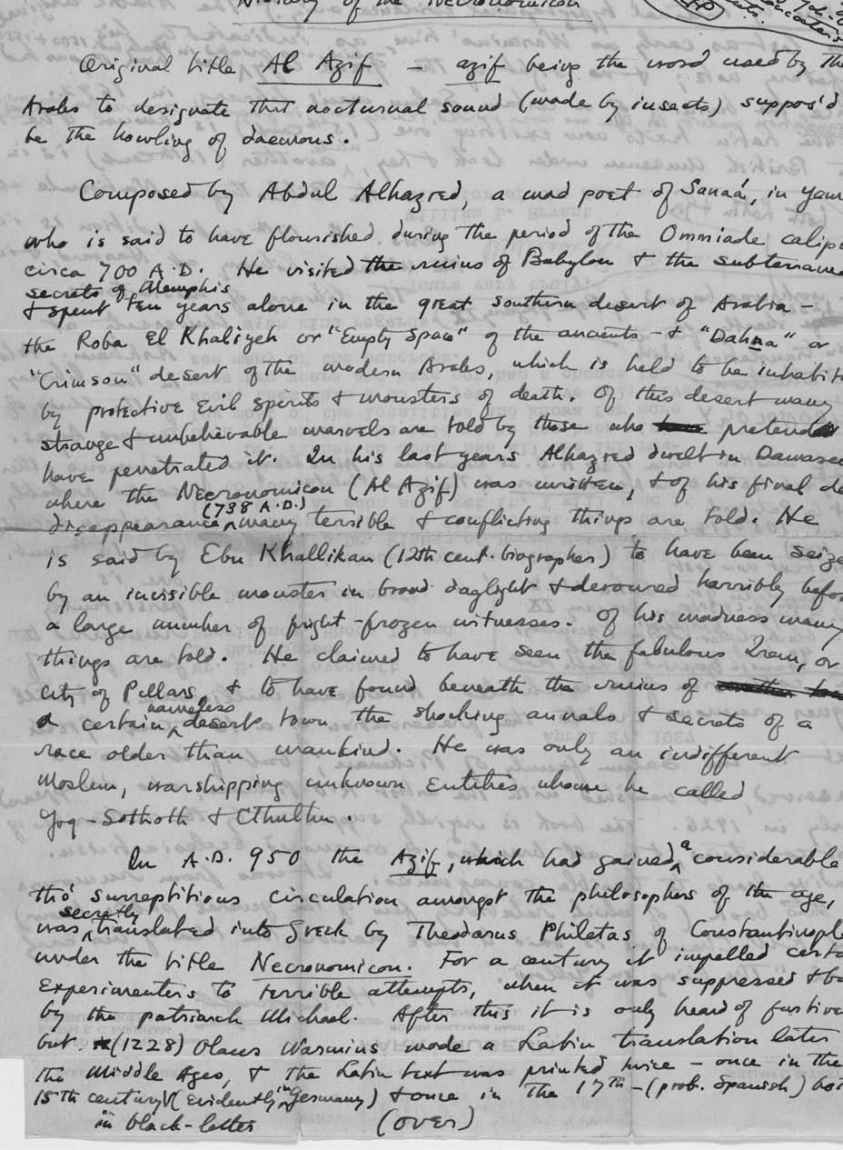 History of the Necronomicon
Original title Al Azif — azif being the word used by the
Arabs to designate that nocturnal sound (made by insects) suppos'd
be the howling of daemons.
Composed by Abdul Alhazred, a mad poet of Sanaá, in Yem
who is said to have flourished during the period of the Ommiade caliph
circa 700 A.D. He visited the ruins of Babylon & the subterranean
secrets of Memphis
& spent ten years alone in the great southern desert of Arabia —
the Roba El Khaliyeh or "Empty Space" of the ancients — & "Dahna" or
"Crimson" desert of the modern Arabs, which is held to be inhabite
by protective evil spirits & monsters of death. Of this desert many
strange & unbelievable marvels are told by those who pretend
have penetrated it. In his last years Alhazred dwelt in Damasc
where the Necronomicon (Al Azif) was written, & of his final de
(738 A.D.)
disappearance many terrible & conflicting things are told. He
is said by Ebn Khallikan (12th cent. biographer) to have been seize
by an invisible monster in broad daylight & devoured horribly befo
a large number of fright-frozen witnesses. Of his madness many
things are told. He claimed to have seen the fabulous Irem, or
City of Pillars, & to have found beneath the ruins of
nameless
a certain desert town the shocking annals & secrets of a
race older than mankind. He was only an indifferent
Moslem, worshipping unknown Entities whom he called
Yog-Sothoth & Cthulhu.
In A.D. 950 the Azif, which had gained a considerable
tho' surreptitious circulation amongst the philosophers of the age,
secretly
was translated into Greek by Theodorus Philetas of Constantinople
under the title Necronomicon. For a century it impelled certa
experimenters to terrible attempts, when it was suppressed & b
by the patriarch Michael. After this it is only heard of furtive
but (1228) Olaus Wormius made a Latin translation later
the Middle Ages, & the Latin text was printed twice — once in the
15th century (evidently in Germany) & once in the 17th — (prob. Spanish) bo
in black-letter (over)